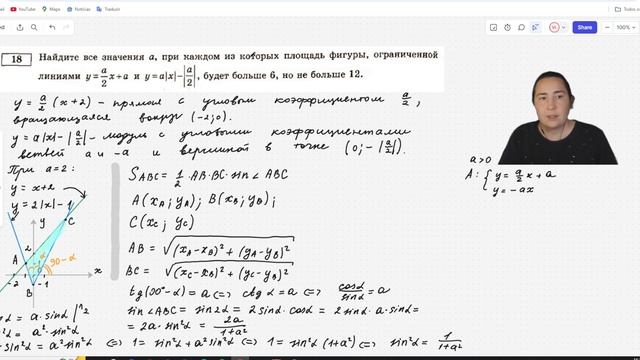 YouTube
Maps
Noticias
Traducir
Todos
Share
100%
18 Найдите все значения a, при каждом из которых площадь фигуры, ограниченной
линиями y = a/2 x + a и y = a|x| − |a/2|, будет больше 6, но не больше 12.
y = a/2 (x+2) – прямая с угловым коэффициентом a/2,
вращающаяся вокруг (-2;0).
y = a|x| - |a/2| - модуль с угловыми коэффициентами
ветвей a и -a и вершиной в точке (0; -|a/2|).
При a=2:
y = x+2
y = 2|x| - 1
y
C
2
A
α
90-α
x
-2
-1
B
S ABC = 1/2 AB·BC·sin∠ABC
A(x_A; y_A); B(x_B; y_B);
C(x_C; y_C)
AB = √((x_A-x_B)²+(y_A-y_B)²)
BC = √((x_C-x_B)²+(y_C-y_B)²)
tg(90°-α) = a ⇔ ctg α = a ⇔ cosα/sinα = a
sin∠ABC = sin2α = 2sinα·cosα = 2sinα·a sinα =
= 2a·sin²α = 2a/(1+a²)
α = a·sinα |^2
²α = a² sin²α
sin²α = a² sin²α ⇔ 1 = sin²α + a² sin²α ⇔ 1 = sin²α (1+a²) ⇔ sin²α = 1/(1+a²)
a>0
A: { y = a/2 x + a
y = -ax